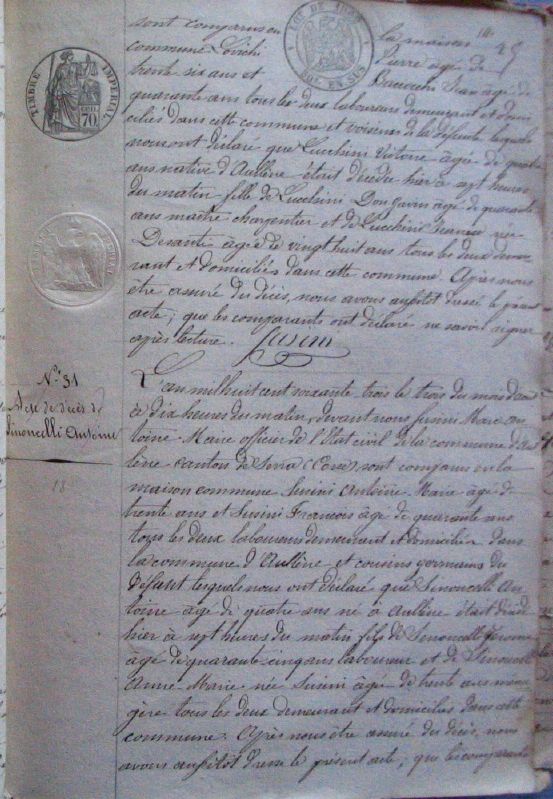 sont comparus en la maison
commune Pierre agé de
trente six ans et Jean agé de
quarante ans tous les deux laboureurs demeurant et domi
ciliés dans cette commune et voisins de la défunte lesquels
nous ont déclaré que Lucchini Vitoire âgée de quatre
ans native d'Aullène était décédée hier à sept heures
du matin fille de Lucchini Don Jean âgé de quarante
ans maître charpentier et de Lucchini née
Desanti âgée de vingt huit ans tous les deux demeu
rant et domiciliés dans cette commune. Après nous
être assuré du décès, nous avons aussitôt dressé le présent
acte; que les comparants ont déclaré ne savoir signer
après lecture. Susini
TIMBRE IMPERIAL
70
N° 31
Acte de décès de
Sinoncelli Antoine
L'an mil huit cent soixante trois le trois du mois d'
à dix heures du matin, devant nous Susini Marc An
toine Marie officier de l'état civil de la commune d'Au
lène canton de Serra (Corse), sont comparus en la
maison commune Susini Antoine Marie âgé de
trente ans et Susini François âgé de quarante ans
tous les deux laboureurs demeurant et domiciliés dans
la commune d'Aullène et cousins germains du
défunt lesquels nous ont déclaré que Sinoncelli An
toine agé de quatre ans né à Aullène était décédé
hier à sept heures du matin fils de Sinoncelli Jerome
âgé de quarante cinq ans laboureur et de Sinoncelli
Anne Marie née Susini âgée de trente ans ména
gère tous les deux demeurant et domiciliés dans cette
commune. Après nous être assuré du décès, nous
avons aussitôt dressé le présent acte, que les comparants